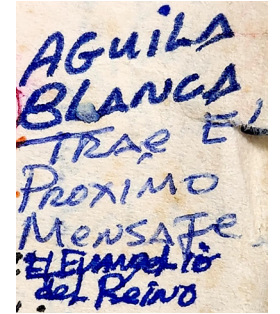 AGUILA
BLANCA
TRAE EL
PROXIMO
MENSAJE
EL EVANGELIO
del REINO